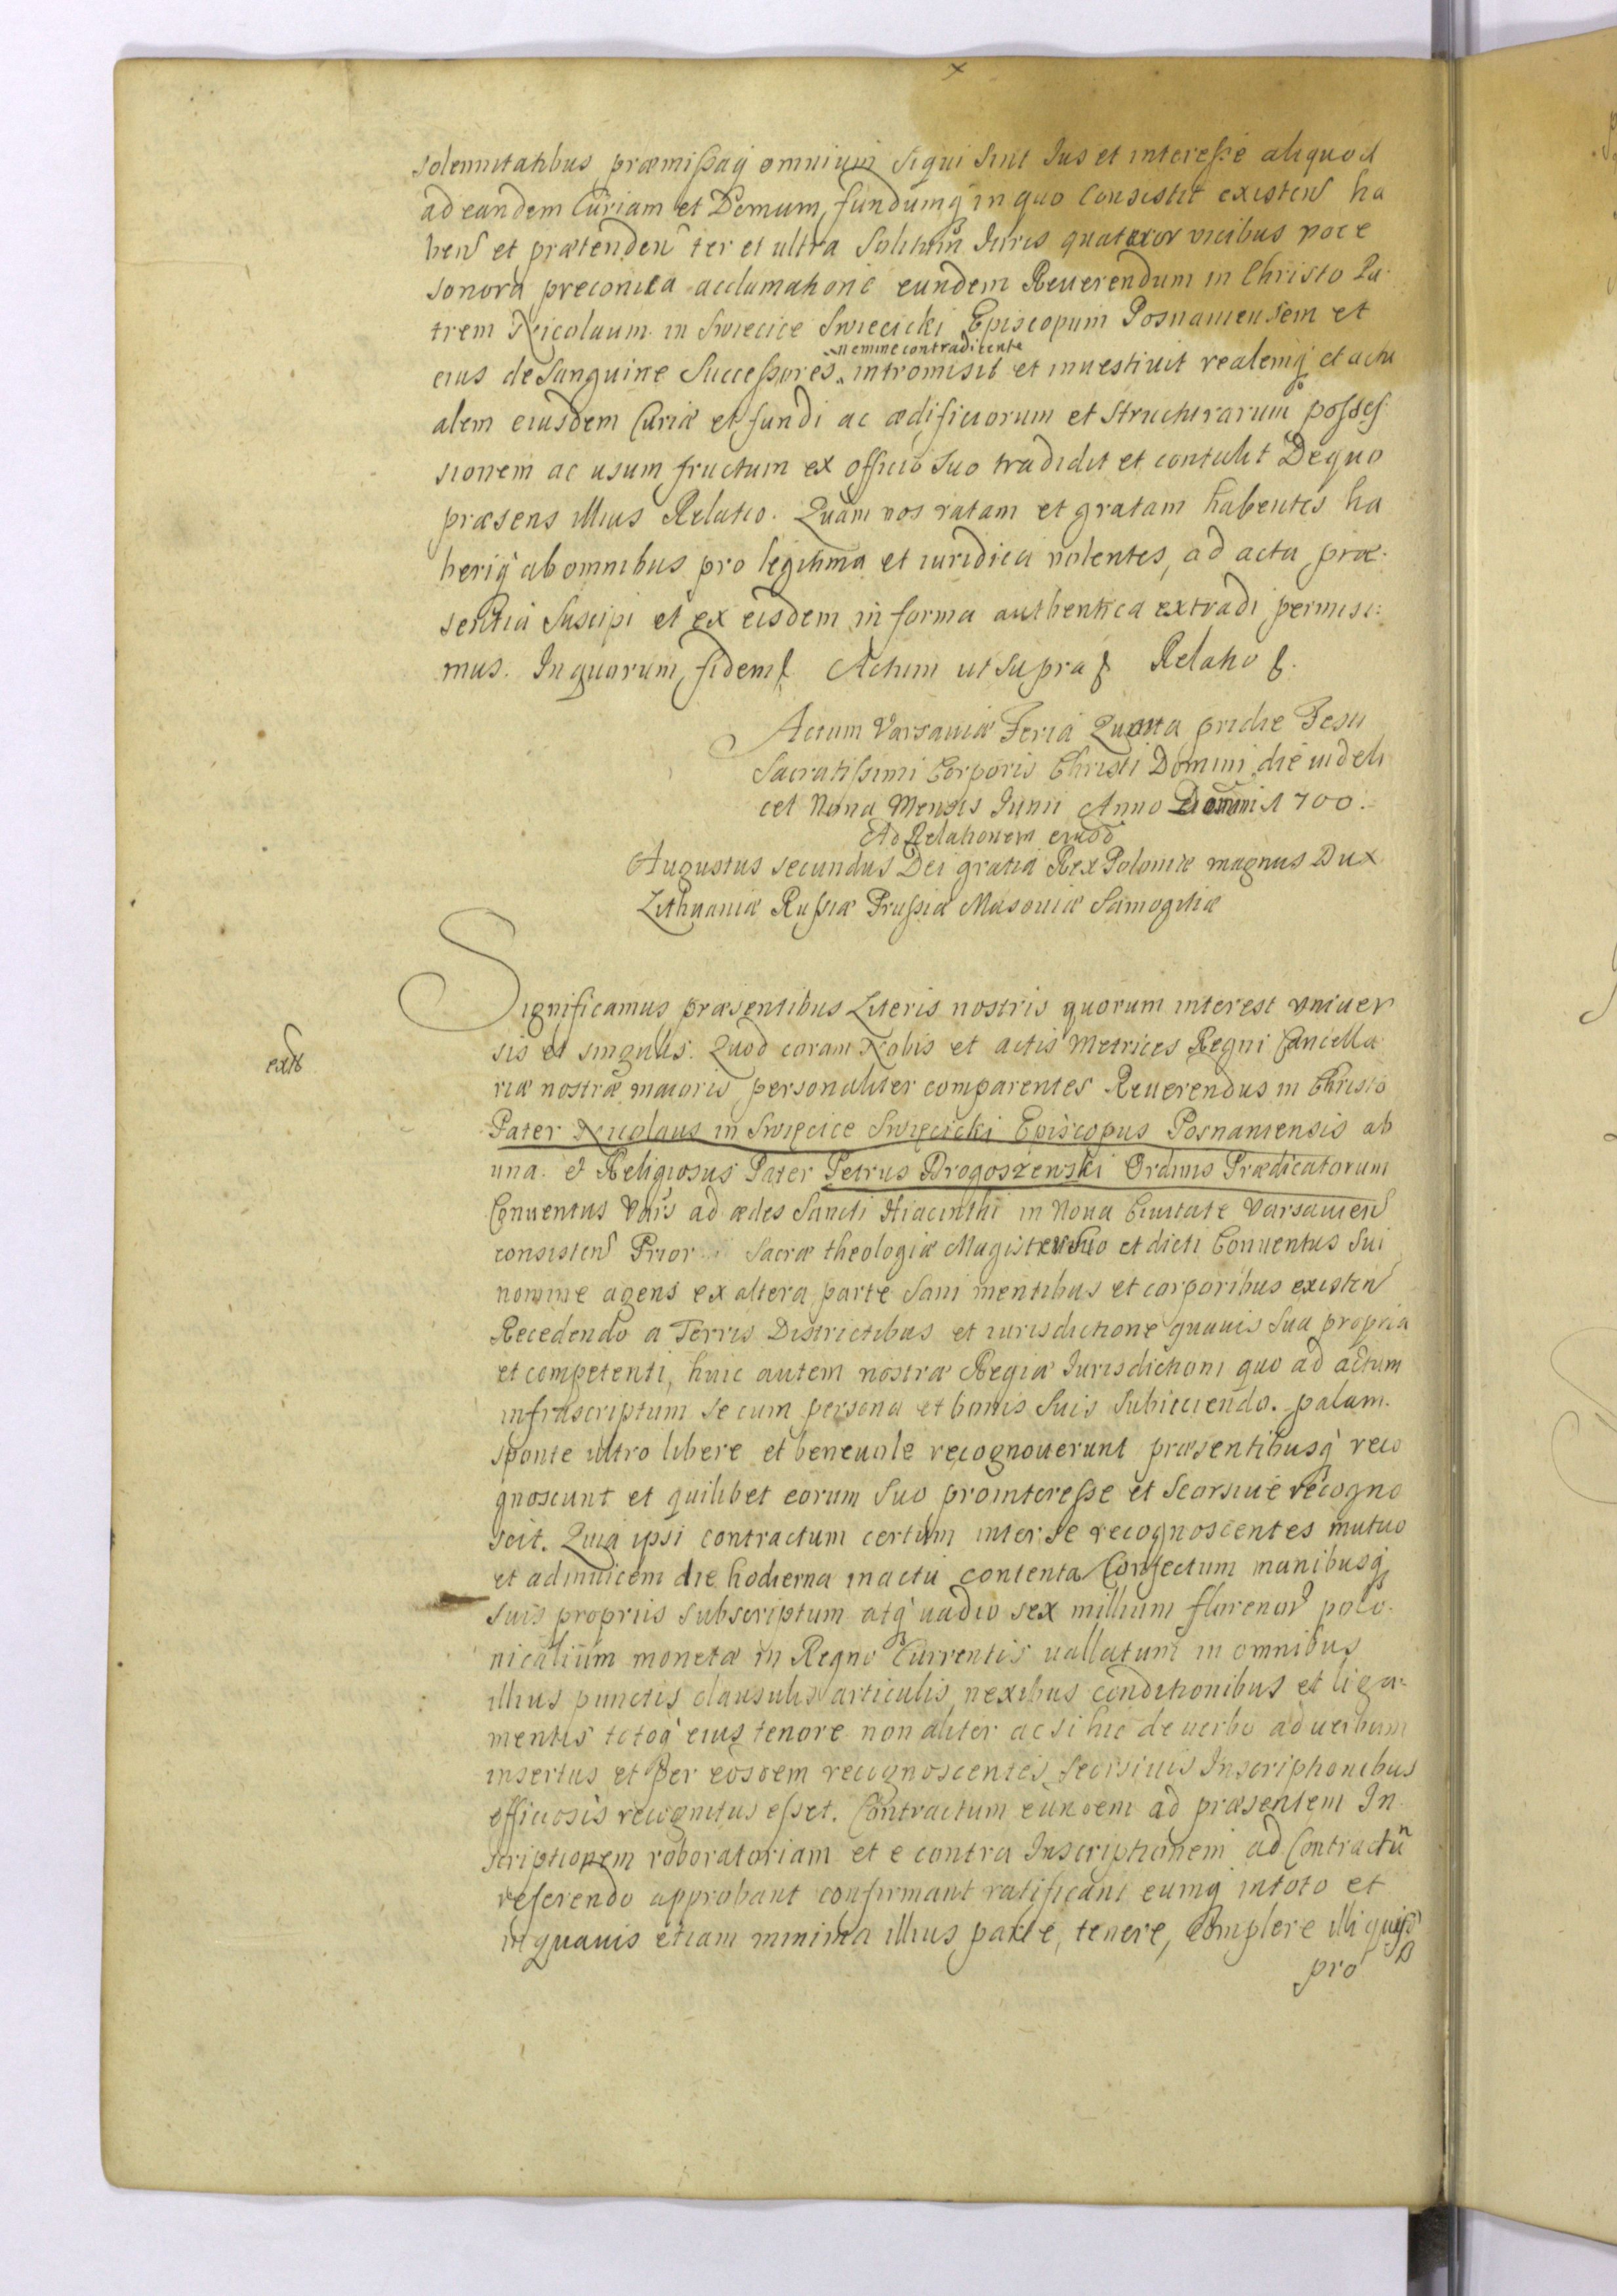 x
solennitatibus præmissaq omnium siqui sint Jus et interesse aliquod
ad eandem Curiam et Domum, fundumq in quo consistit existen ha
ben et prætenden ter et ultra solitum Juris quatuor vicibus voce
sonora preconica acclamatione eundem Reuerendum in Christo Pa-
trem Nicolaum in Swiecice Swiecicki Episcopum Posnaniensem et
nemine contradicente
eius de Sanguine Successores intromisit et inuestiuit realemq et actu
alem eiusdem Curiæ et fundi ac ædificiorum et structurarum posses-
sionem ac usum fructum ex officio suo tradidit et contulit De quo
præsens illius Relatio. Quam nos ratam et gratam habentes ha
beriq ab omnibus pro legitima et iuridica volentes, ad acta præ-
sentia suscipi et ex eisdem in forma authentica extradi permisi:
mus. In quorum fidem Actum ut supra Relatio
Actum Varsauiæ Feria Quarta pridie Festi
Sacratissimi Corporis Christi Domini die videli
cet Nona Mensis Junii Anno Domini 1700.
Ad Relationem eiusd
Augustus secundus Dei gratia Rex Poloniæ magnus Dux
Lithuaniæ Russiæ Prussiæ Masouiæ Samogitiæ
Significamus præsentibus Literis nostris quorum interest vniuer
sis et singulis. Quod coram Nobis et actis Metrices Regni Cancella
extb
riæ nostræ maioris personaliter comparentes Reuerendus in Christo
Pater Nicolaus in Swięcice Swięcicki Episcopus Posnaniensis ab
una. et Religiosus Pater Petrus Drogoszewski Ordinis Prædicatorum
Conuentus Vars ad ædes Sancti Hiacinthi in Noua Ciuitate Varsauien
consisten Prior Sacræ theologiæ Magister suo et dicti Conuentus Sui
nomine agens ex altera parte Sani mentibus et corporibus existen
Recedendo a Terris Districtibus et iurisdictione quauis sua propria
et competenti, huic autem nostræ Regiæ Jurisdictioni quo ad actum
infrascriptum se cum persona et bonis suis subiiciendo. palam.
sponte ultro libere et beneuole recognouerunt præsentibusq reco
gnoscunt et quilibet eorum suo prointeresse et seorsiue recogno
scit. Quia ipsi contractum certum inter se recognoscentes mutuo
et adinuicem die hodierna in actu contenta Confectum manibusq
suis propriis subscriptum atq uadio sex millium florenor polo-
nicalium monetæ in Regno Currentis uallatum in omnibus
illius punctis clausulis articulis, nexibus conditionibus et liga-
mentis totoq eius tenore non aliter ac si hic de uerbo ad uerbum
insertus et per eosdem recognoscentes decisiuis Inscriptionibus
officiosis recognitus esset. Contractum eundem ad præsentem In
scriptionem roboratoriam et e contra Inscriptionem ad Contractũ
referendo approbant confirmant ratificant eumq in toto et
in quauis etiam minima illius parte, tenere, complere illi
pro